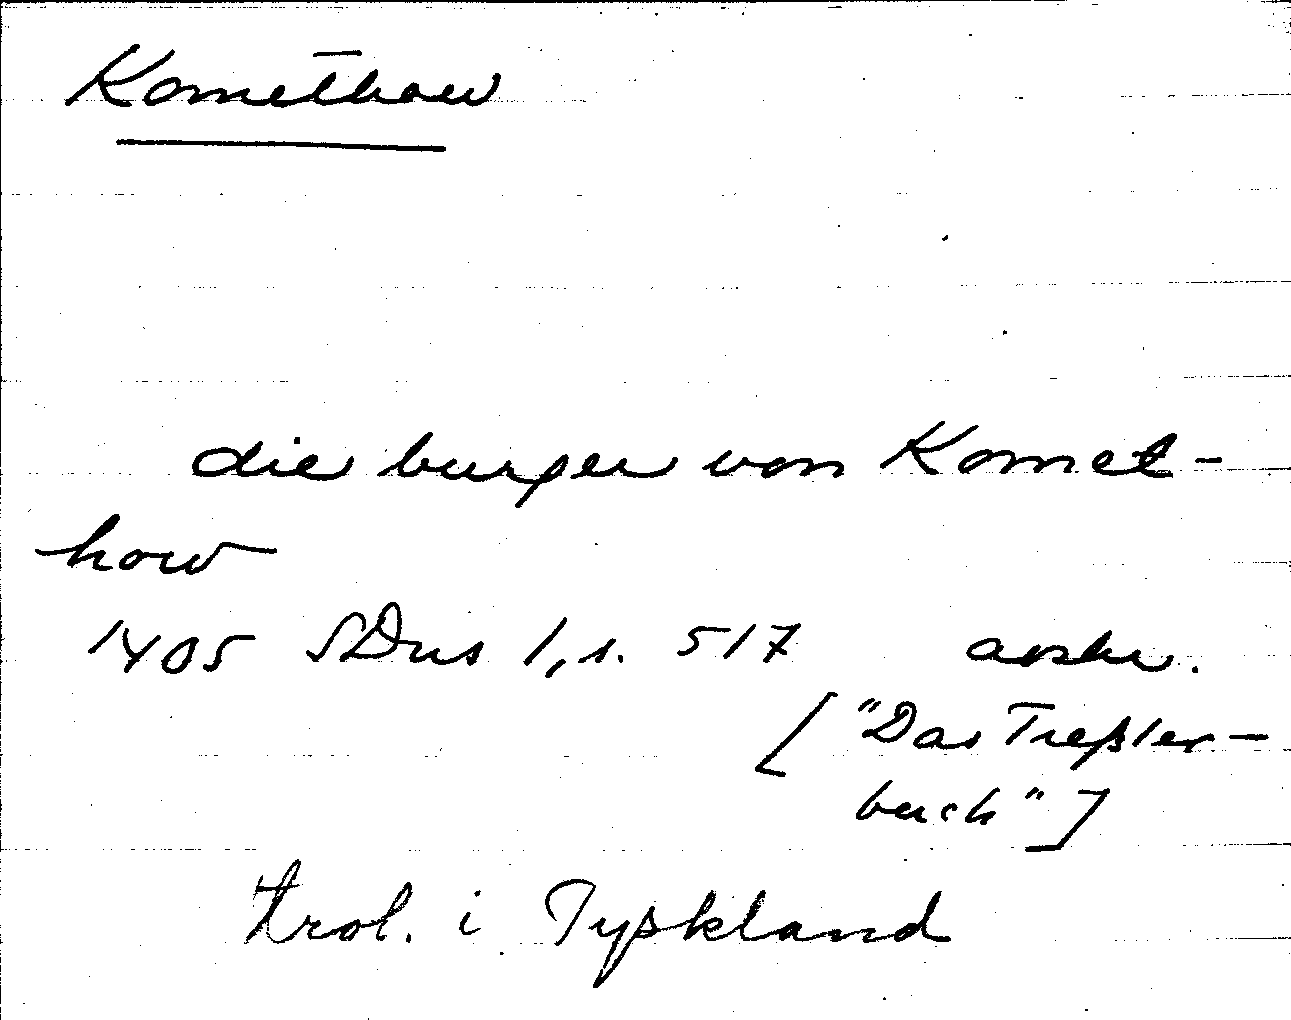 Komethow
die burger von Komet-
how
1405 SDns 1, s. 517 avskr.
["Das Treßler-
buch"]
trol. i Tyskland